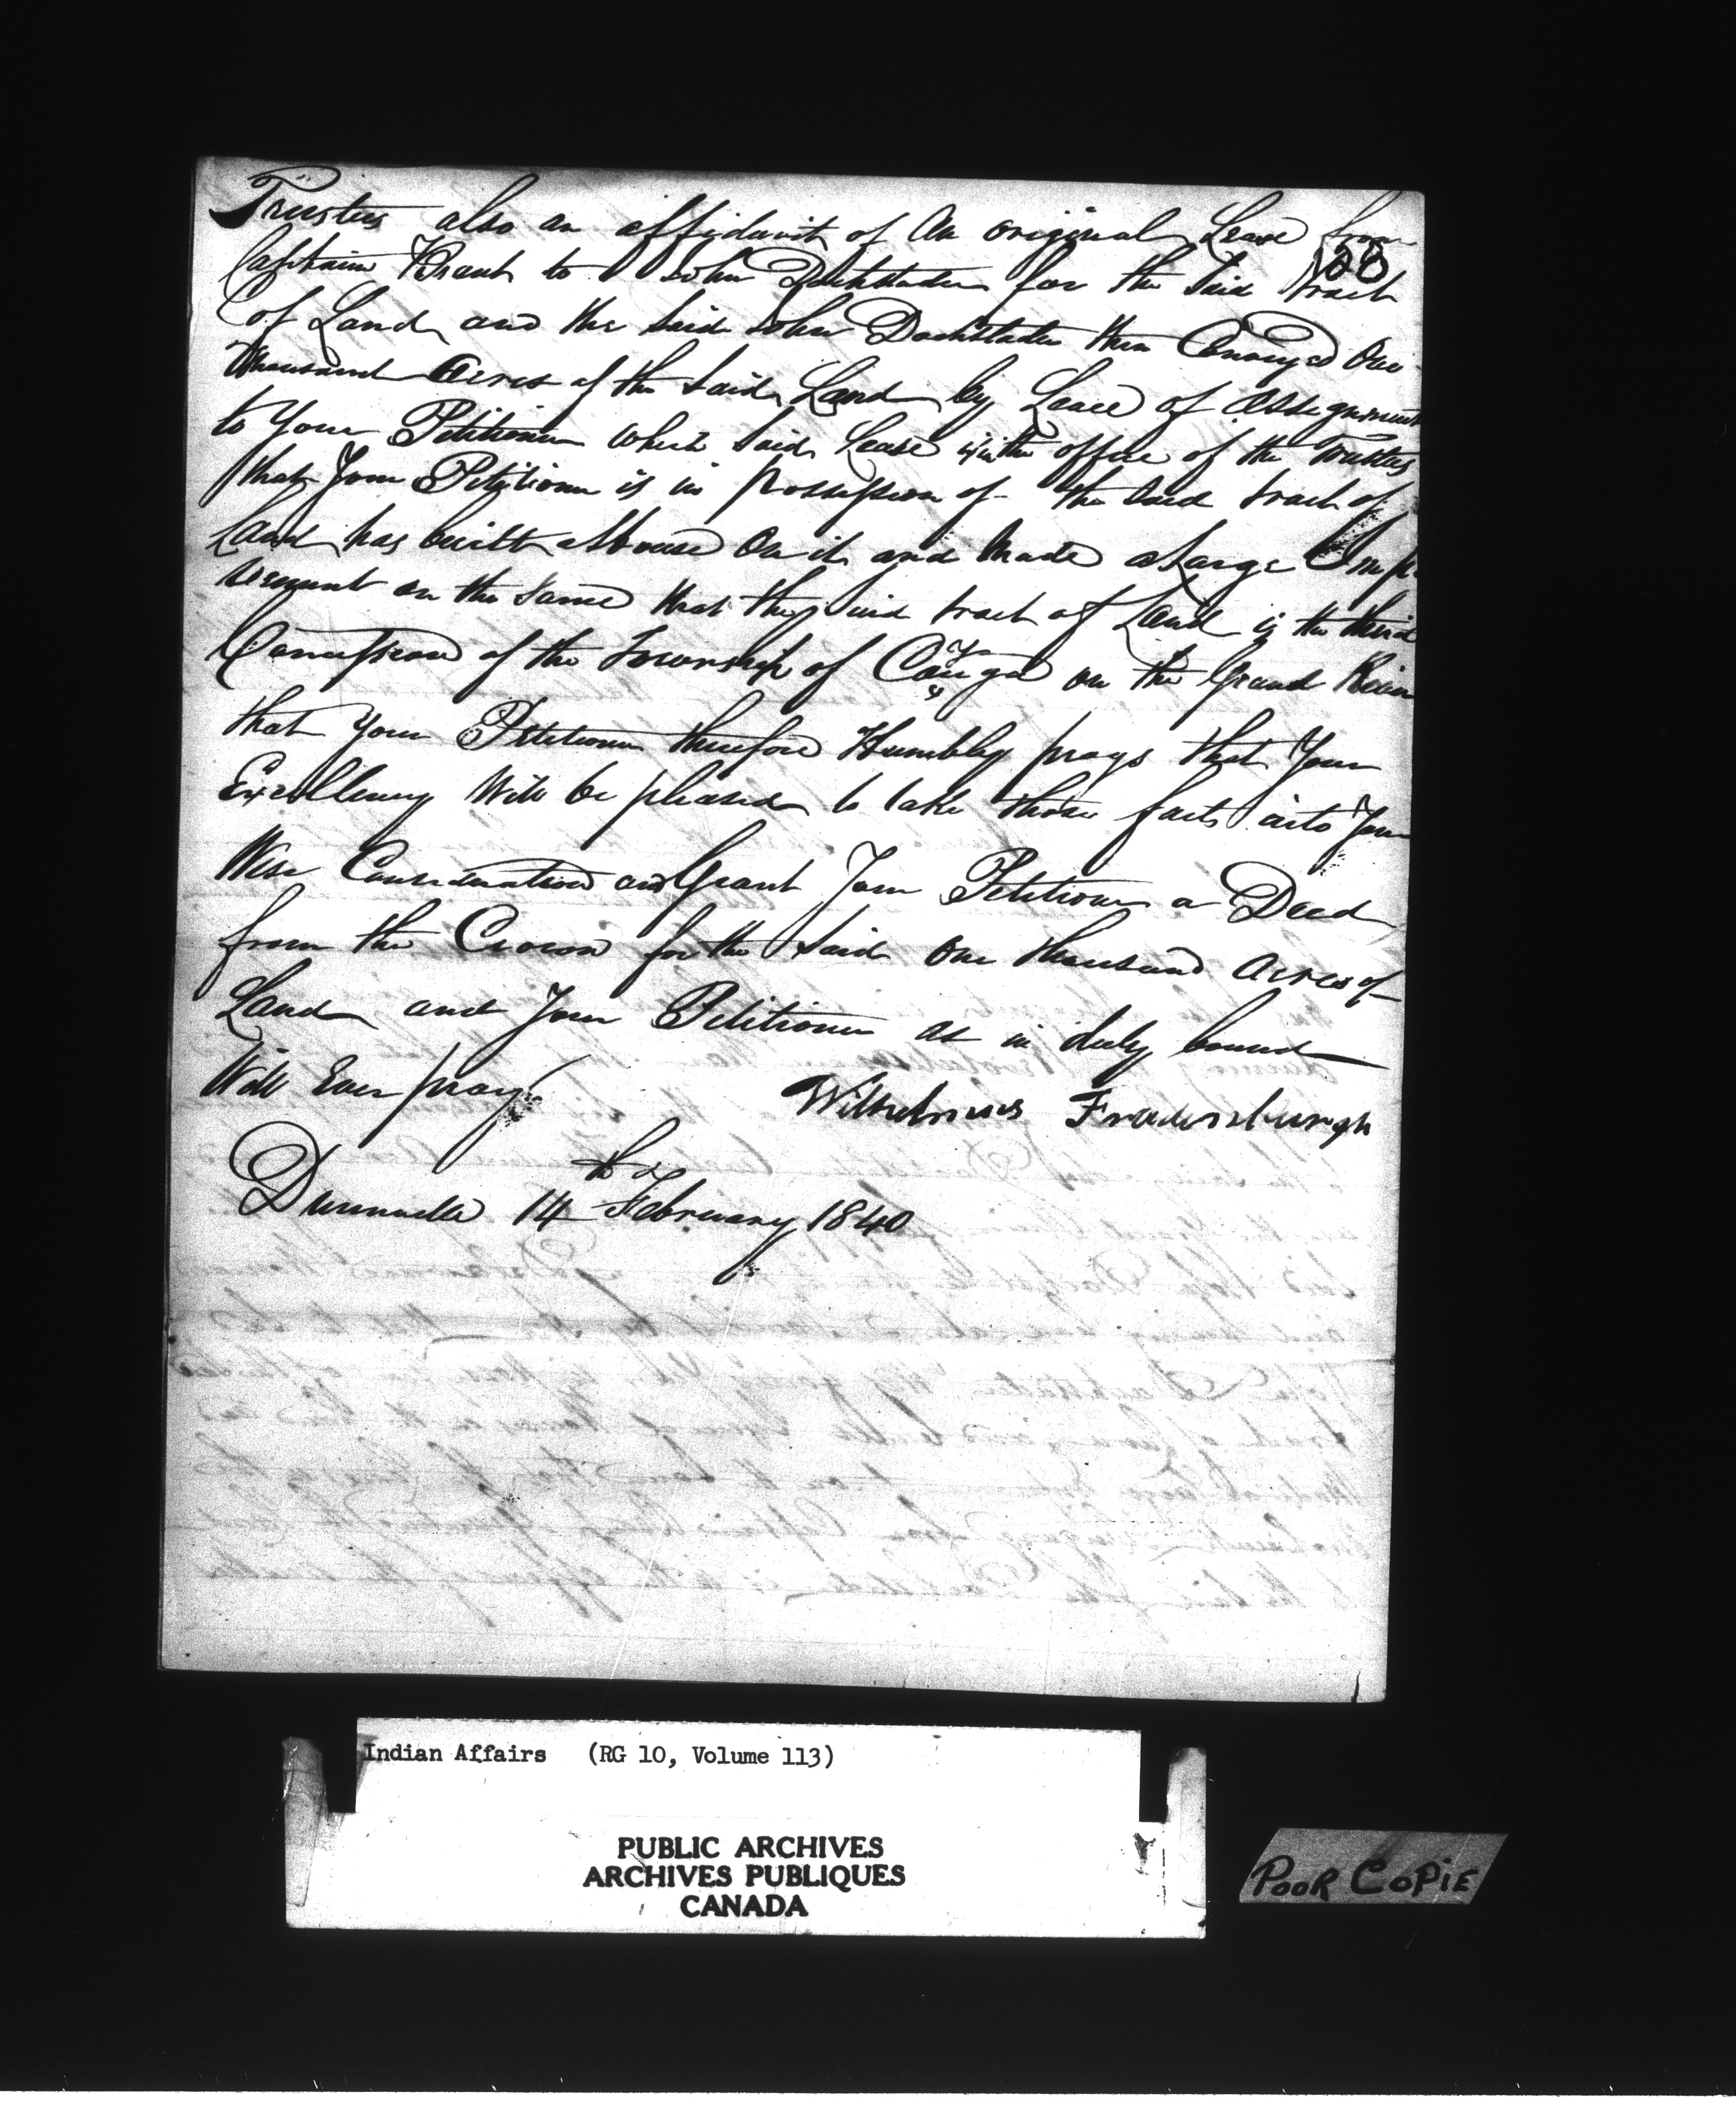 Trustees also an affidavit of An original Lease from
28
Captain Brant to John Dochstader for the Said tract
of Land and the Said John Dochstader then Conveyed One
thousand Acres of the Said Land by Leace of Assignment
to Your Petitioner which Said Lease is in the office of the Trustees
that Your Petitioner is in Possession of the Said tract of
Land has built a House On it and Made a Large Impr
vement on the Same that the said tract of Land is the third
Concession of the Township of Cayuga on the Grand River
that Your Petitioner therefore Humbly prays that Your
Excellency Will be pleased to take those facts into Your
Wise Consideration and Grant Your Petitioner a Deed
from the Crown for the Said One thousand Acres of
Land and Your Petitioner as in duty bound
Will Ever pray
Wilhelmus Fradensburgh
Dunnville 14th February 1840
Indian Affairs (RG 10, Volume 113)
PUBLIC ARCHIVES
ARCHIVES PUBLIQUES
CANADA
POOR COPIE